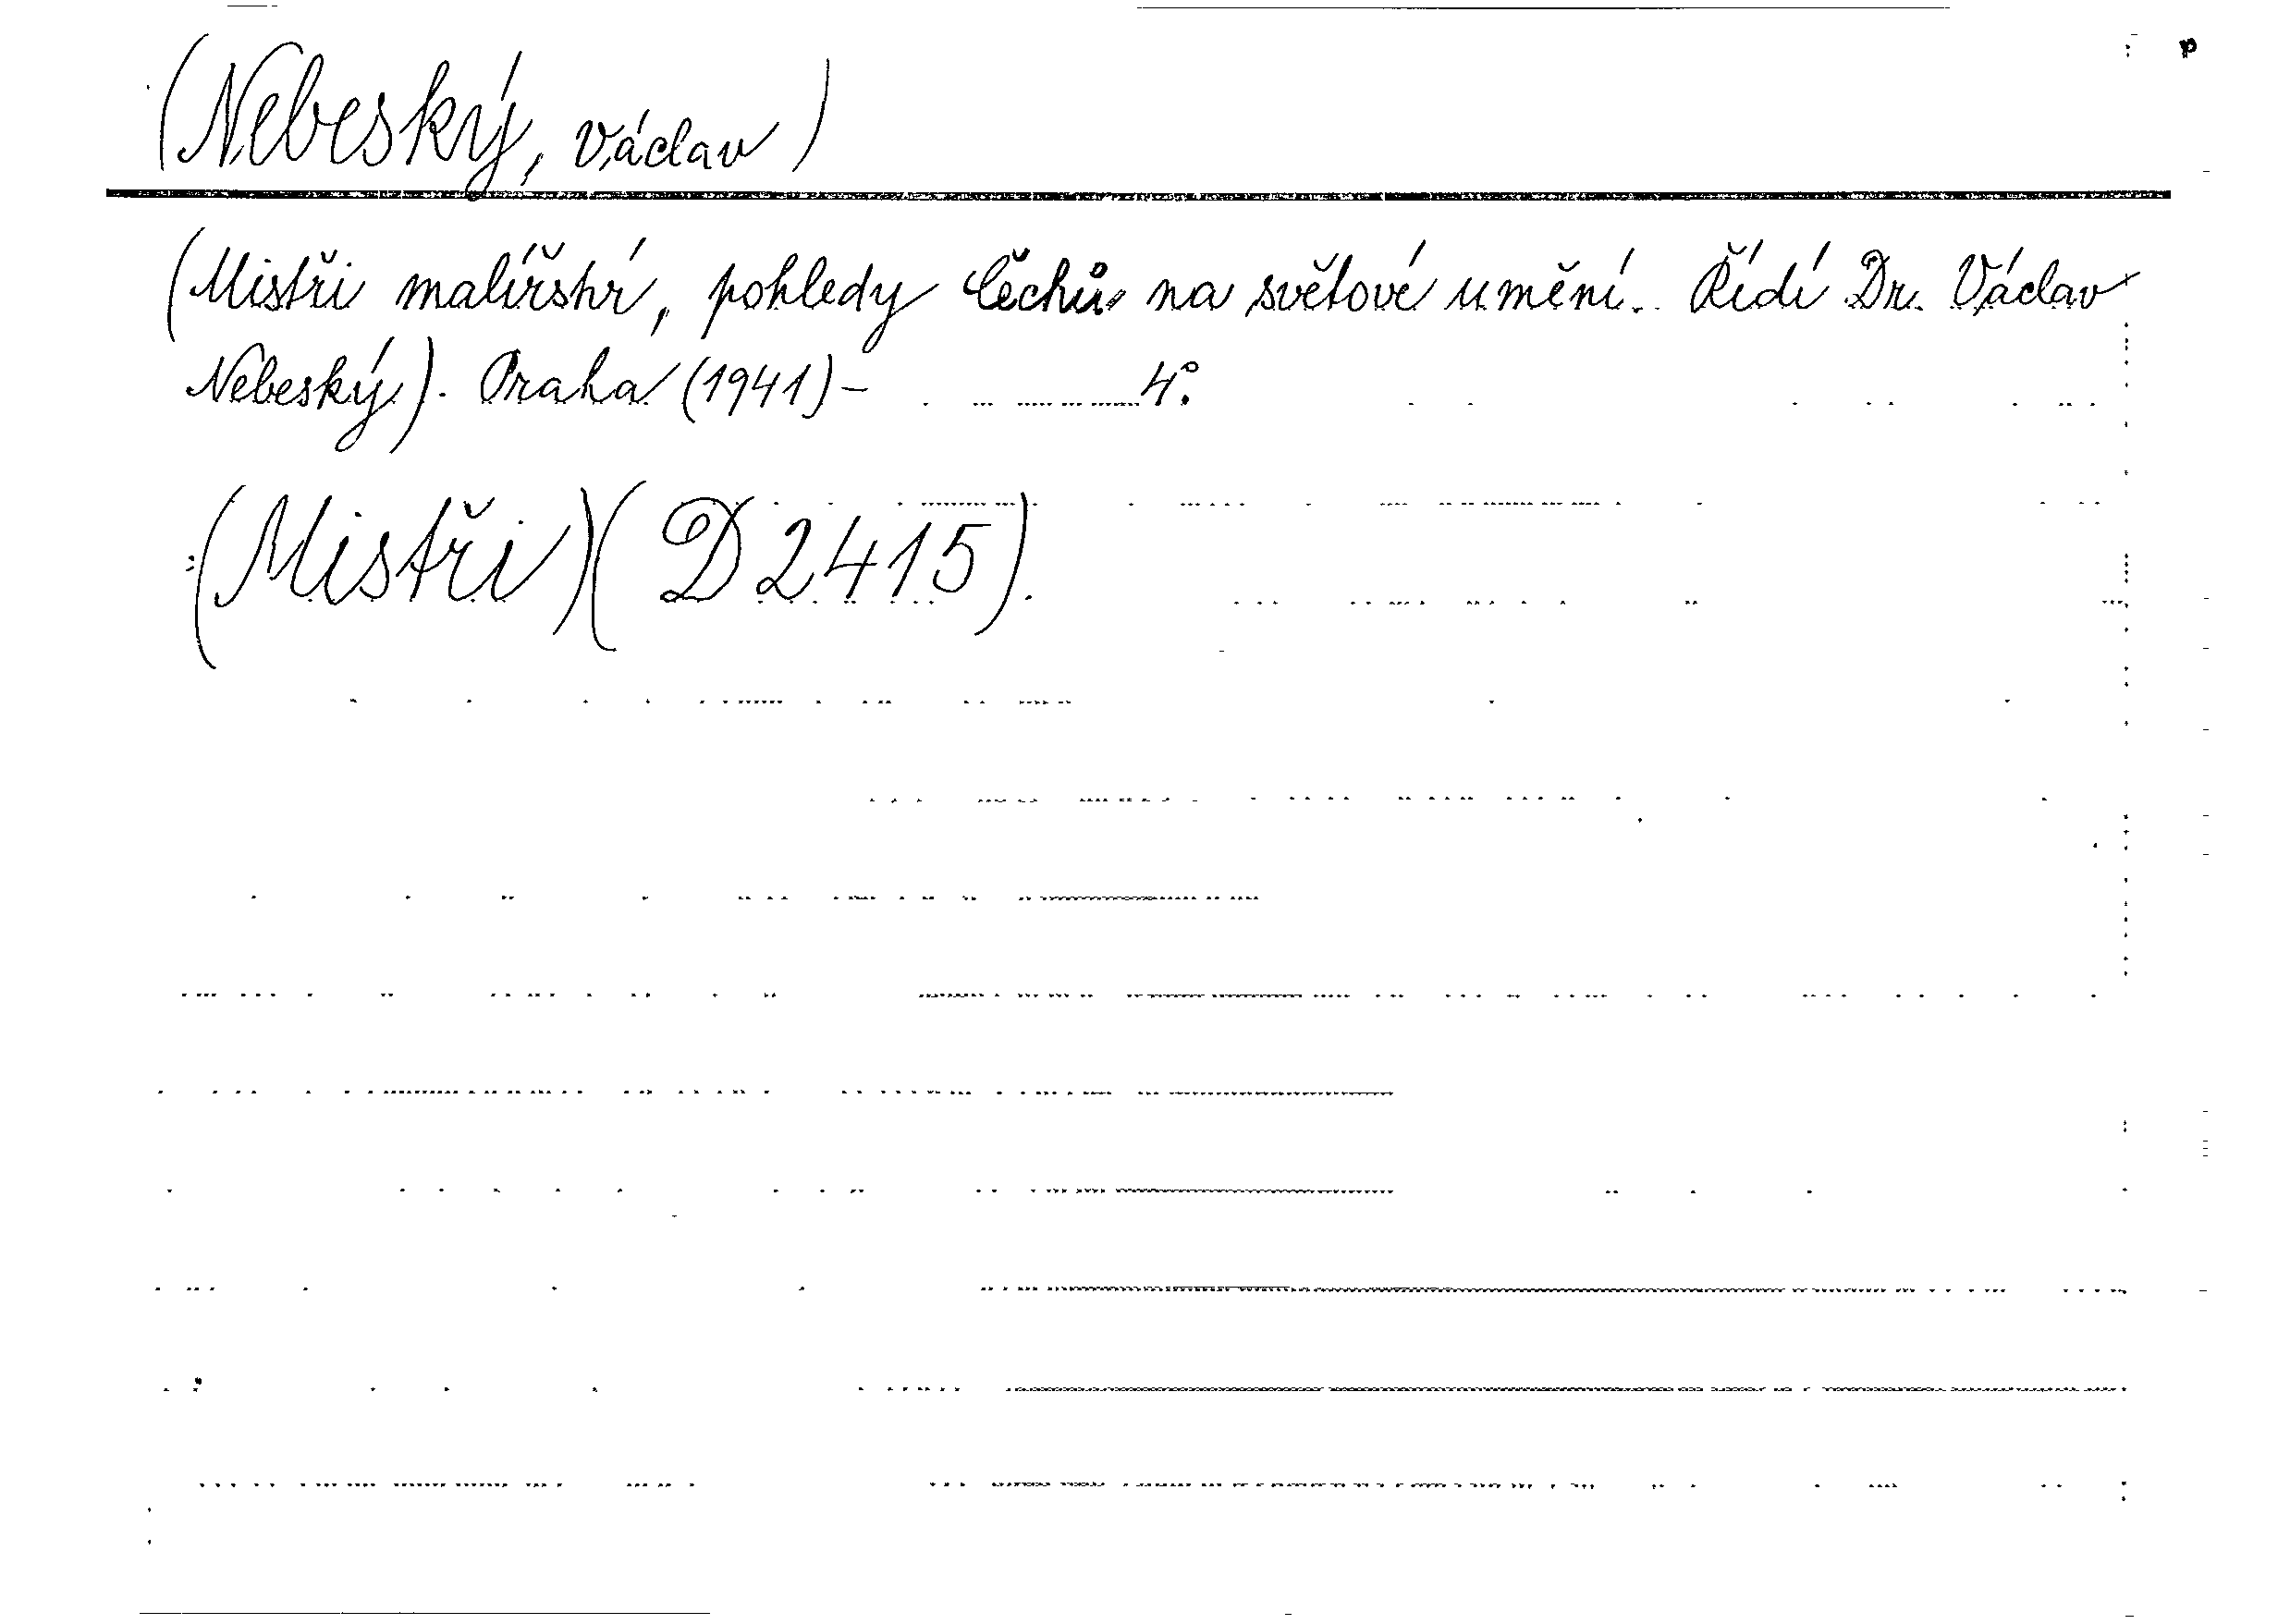 (Nebeský, Václav)
(Mistři malířství, pohledy Čechů na světové umění. Řídí Dr. Václav
Nebeský). Praha (1941)- 4°.
(Mistři)(D 2415).